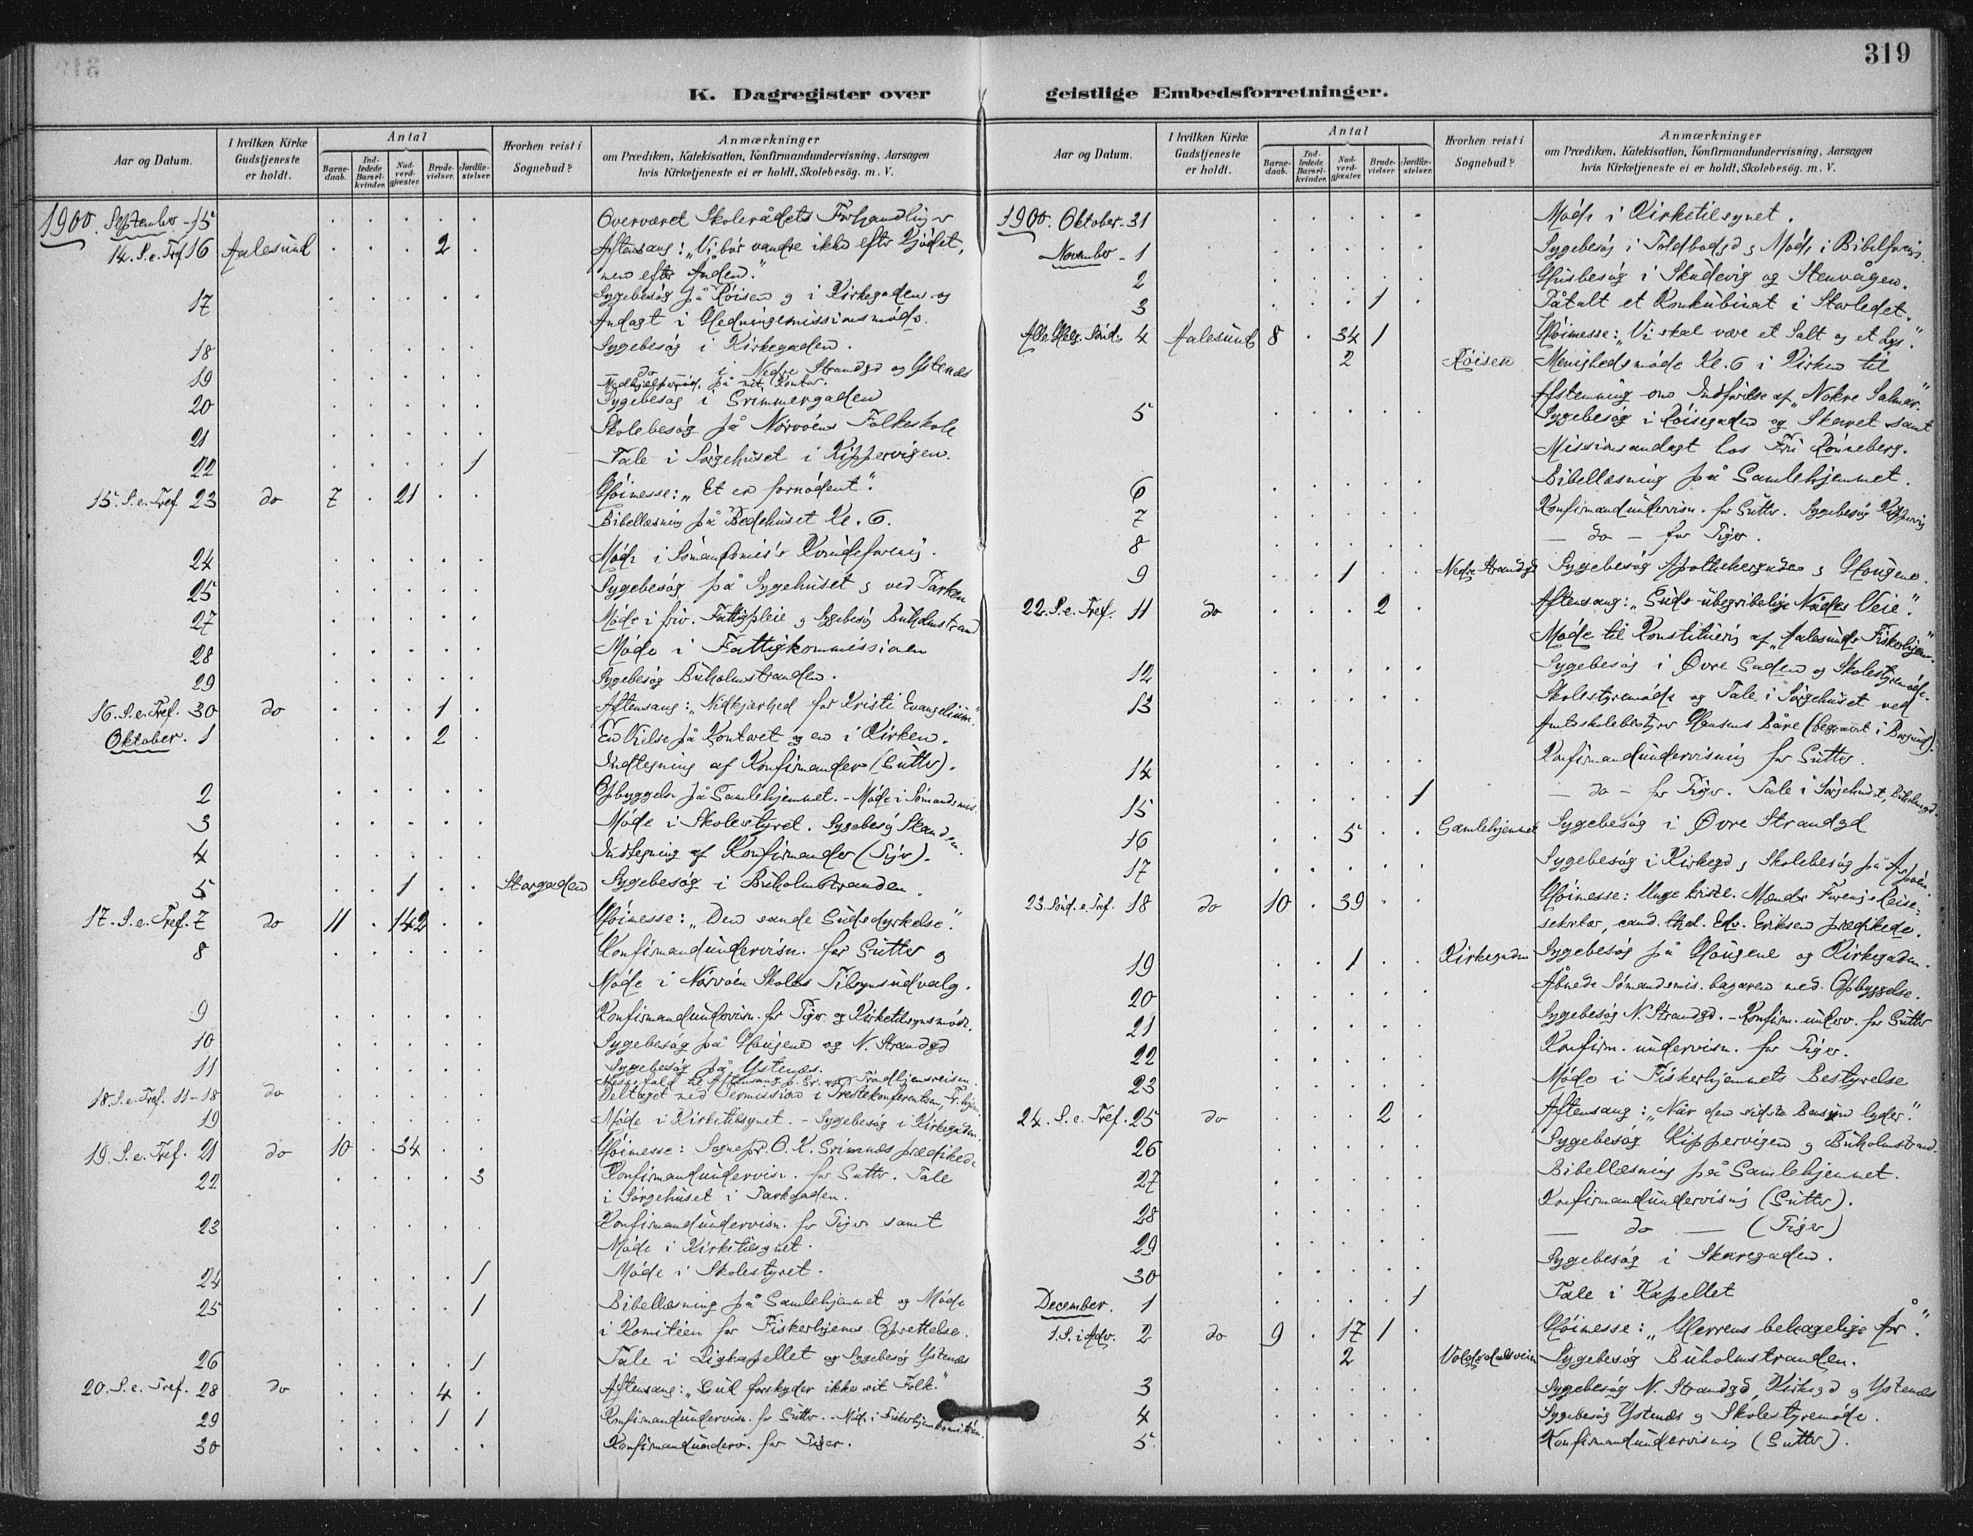 319
K. Dagregister over geistlige Embedsforretninger.
Aar og Datum.
I hvilken Kirke Gudstjeneste er holdt.
Antal
Barne-daab.
Ind-ledede Barsel-kvinder.
Nad-verd-gjæster.
Brude-vielser.
Jordfæ-stelser.
Hvorhen reist i Sognebud?
Anmærkninger
om Prædiken, Katekisation, Konfirmandundervisning, Aarsagen
hvis Kirketjeneste ei er holdt, Skolebesøg. m. V.
1900. September - 15 Overværet Skolerådets Forhandlinger
14. S. e. Tref. 16 Aalesund 2 Aftensang: „Vi bør vandre ikke efter Kjødet,
men efter Anden."
17 Sygebesøg på Røisen og i Kirkegaden og
Andagt i Hedningemissionsmøde.
18 Sygebesøg i Kirkegaden.
19 do i Nedre Strandgd og Ystenæs
20 Sygebesøg i Grimmergaden
21 Skolebesøg på Nørvøens Folkeskole
22 1 Tale i Sørgehuset i Kippervigen.
15. S. e. Tref. 23 do 7 21 Høimesse: „Et er fornødent".
Bibellæsning på Bedehuset Kl. 6.
24 Møde i Sømandsmis's Kvindeforening.
25 Sygebesøg på Sygehuset og ved Parken
27 Møde i friv. Fattigpleie og Sygebesøg Buholmstrand
28 Møde i Fattigkommissionen
29 Sygebesøg Buholmstranden.
16. S. e. Tref. 30 do 1 Aftensang: „Nidkjærhed for Kristi Evangelium."
Oktober. 1 2 En Vielse på Kontoret og en i Kirken.
Indtegning af Konfirmander (Gutter).
2 Opbyggelse på Gamlehjemmet. - Møde i Sømandsmis.
3 Møde i Skolestyret. Sygebesøg
4 Indtegning af Konfirmander (Piger).
5 1 Storgaden Sygebesøg i Buholmstranden.
17. S. e. Tref. 7 do 11 142 Høimesse: „Den sande Gudsdyrkelse".
8 Konfirmandundervisn. for Gutter og
Møde i Nørvøen Skoles Tilsynsudvalg.
9 Konfirmandundervisn. for Piger og Kirketilsynsmøde.
10 Sygebesøg på Haugene og N. Strandgd
11 Sygebesøg på Ystenæs.
18. S. e. Tref. 11-18 do Deltaget med Permission i Prestekonferentsen, Tr.hjem.
19 Møde i Kirketilsynet. - Sygebesøg i Kirkegaden.
19. S. e. Tref. 21 do 10 34 Høimesse: Sognepr. O. K. Grimnæs prædikede
22 3 Konfirmandundervisn. for Gutter. Tale
i Sørgehuset i Parkgaden.
23 Konfirmandundervisn. for Piger samt
Møde i Kirketilsynet.
24 1 Møde i Skolestyret.
25 1 Bibellæsning på Gamlehjemmet og Møde
i Komitéen for Fiskerhjems Oprettelse.
26 1 Tale i Ligkapellet og Sygebesøg Ystenæs
20. S. e. Tref. 28 do 4 Aftensang: „Gud forskyder ikke sit Folk."
29 1 1 Konfirmandundervisn. for Gutter. - Møde i Fiskerhjemkomitéen.
30 Konfirmandunderv. for Piger.
Aar og Datum.
I hvilken Kirke Gudstjeneste er holdt.
Antal
Barne-daab.
Ind-ledede Barsel-kvinder.
Nad-verd-gjæster.
Brude-vielser.
Jordfæ-stelser.
Hvorhen reist i Sognebud?
Anmærkninger
om Prædiken, Katekisation, Konfirmandundervisning, Aarsagen
hvis Kirketjeneste ei er holdt, Skolebesøg. m. V.
1900. Oktober - 31 Møde i Kirketilsynet.
November - 1 Sygebesøg i Toldbodgd og Møde i Bibelforening.
2 Husbesøg i Skudevig og Stenvågen.
3 1 Påtalt et Konkubinat i Storledet.
Alle Helg. Sønd. 4 Aalesund 8 34 1 Høimesse: „Vi skal være et Salt og et Lys".
2 Røisen Menighedsmøde Kl. 6 i Kirken til
Afstemning om Indførelse af „Nokre Salmar".
5 Sygebesøg i Røisegaden og Skaret samt
Missionsandagt hos Fru Rønneberg.
6 Bibellæsning på Gamlehjemmet.
7 Konfirmandundervisn. for Gutter. Sygebesøg Kippervig
8 — do — for Piger.
9 1 Nedre Strandgd Sygebesøg Apothekergaden og Haugene.
22. S. e. Tref. 11 do 2 Aftensang: „Guds ubegribelige Nådes Veie".
Møde til Konstituering af „Aalesunds Fiskerhjem".
12 Sygebesøg i Øvre Gaden og Skolestyremøde.
13 Skolestyremøde og Tale i Sørgehuset ved
Amtsskolebestyrer Hansens Båre (begravet i Borgund).
14 Konfirmandundervisning for Gutter.
15 1 — do — for Piger. Tale i Sørgehuset, Buholmgd.
16 5 Gamlehjemmet Sygebesøg i Øvre Strandgd
17 Sygebesøg i Kirkegd og Skolebesøg på Aspøen.
23. Sønd. e. Tref. 18 do 10 39 Høimesse: Unge kristl. Mænds Forenings Reise-
sekretær, cand. theol. Edv. Eriksen prædikede.
19 1 Kirkegaden Sygebesøg på Haugene og Kirkegaden.
20 Åbnede Sømandsmis. basaren med Opbyggelse.
21 Sygebesøg N. Strandgd. - Konfirm. underv. for Gutter
22 Konfirm. undervisn. for Piger.
23 Møde i Fiskerhjemmets Bestyrelse
24. S. e. Tref. 25 do 2 Aftensang: „Når den sidste Basun lyder".
26 Sygebesøg Kippervigen og Buholmstrand.
27 Bibellæsning på Gamlehjemmet.
28 Konfirmandundervisning (Gutter).
29 — do — (Piger)
30 Sygebesøg i Skaregaden.
December. 1 1 Tale i Kapellet
1. S. i Adv. 2 do 9 17 1 Høimesse: „Herrens behagelige År".
2 Voldsdalsveien Sygebesøg Buholmstranden.
3 Sygebesøg N. Strandgd, Kirkegd og Ystenæs
4 Sygebesøg Ystenæs og Skolestyremøde.
5 Konfirmandundervisning (Gutter).